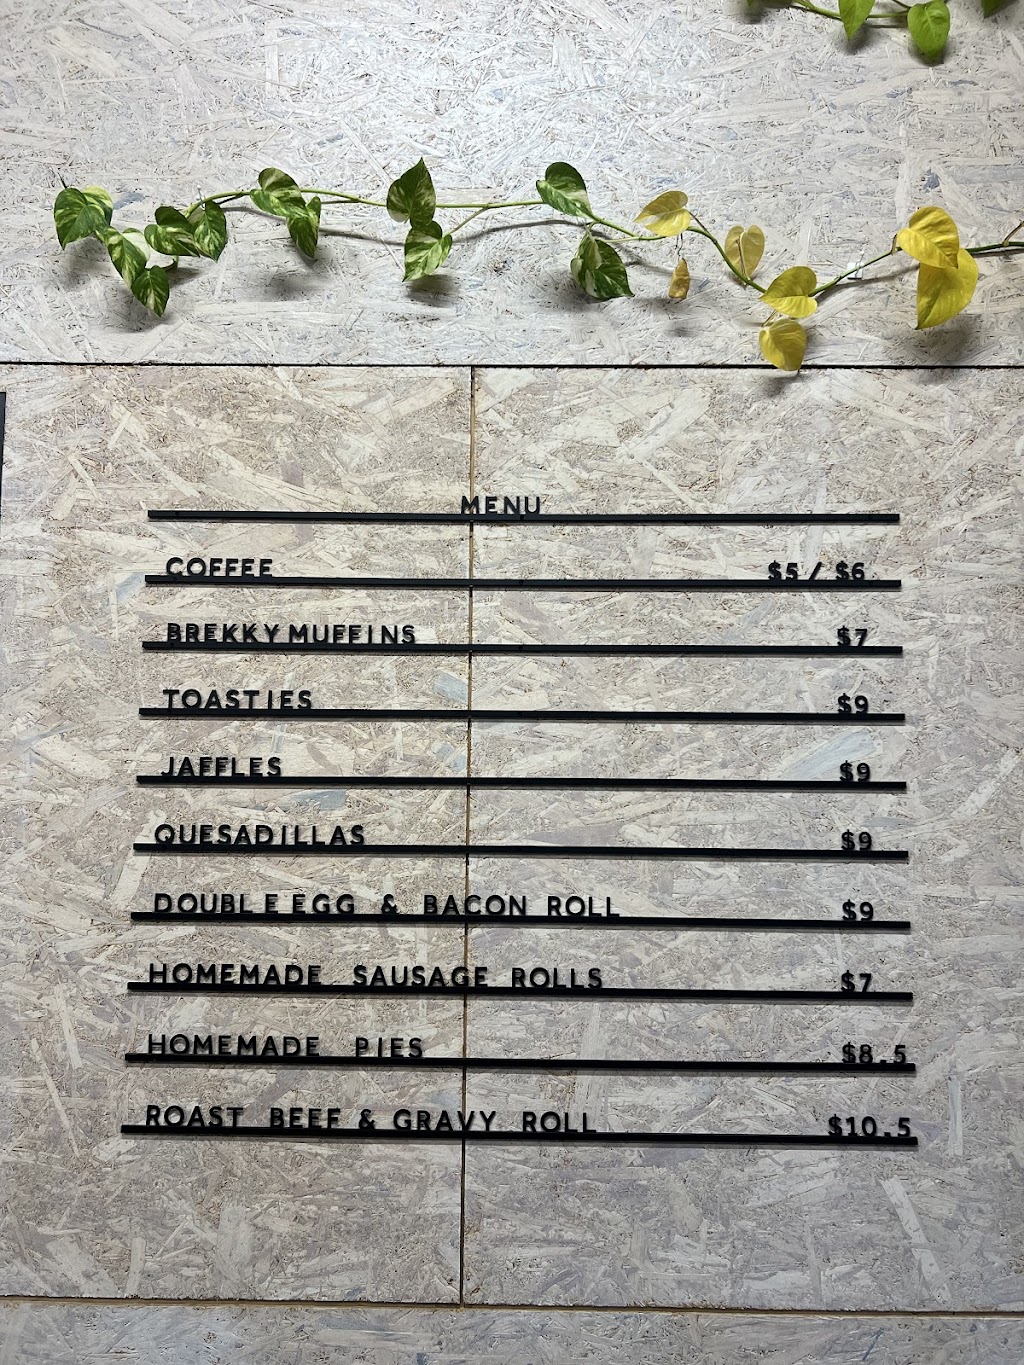 MENU
COFFEE $5 / $6
BREKKY MUFFINS $7
TOASTIES $9
JAFFLES $9
QUESADILLAS $9
DOUBLE EGG & BACON ROLL $9
HOMEMADE SAUSAGE ROLLS $7
HOMEMADE PIES $8.5
ROAST BEEF & GRAVY ROLL $10.5